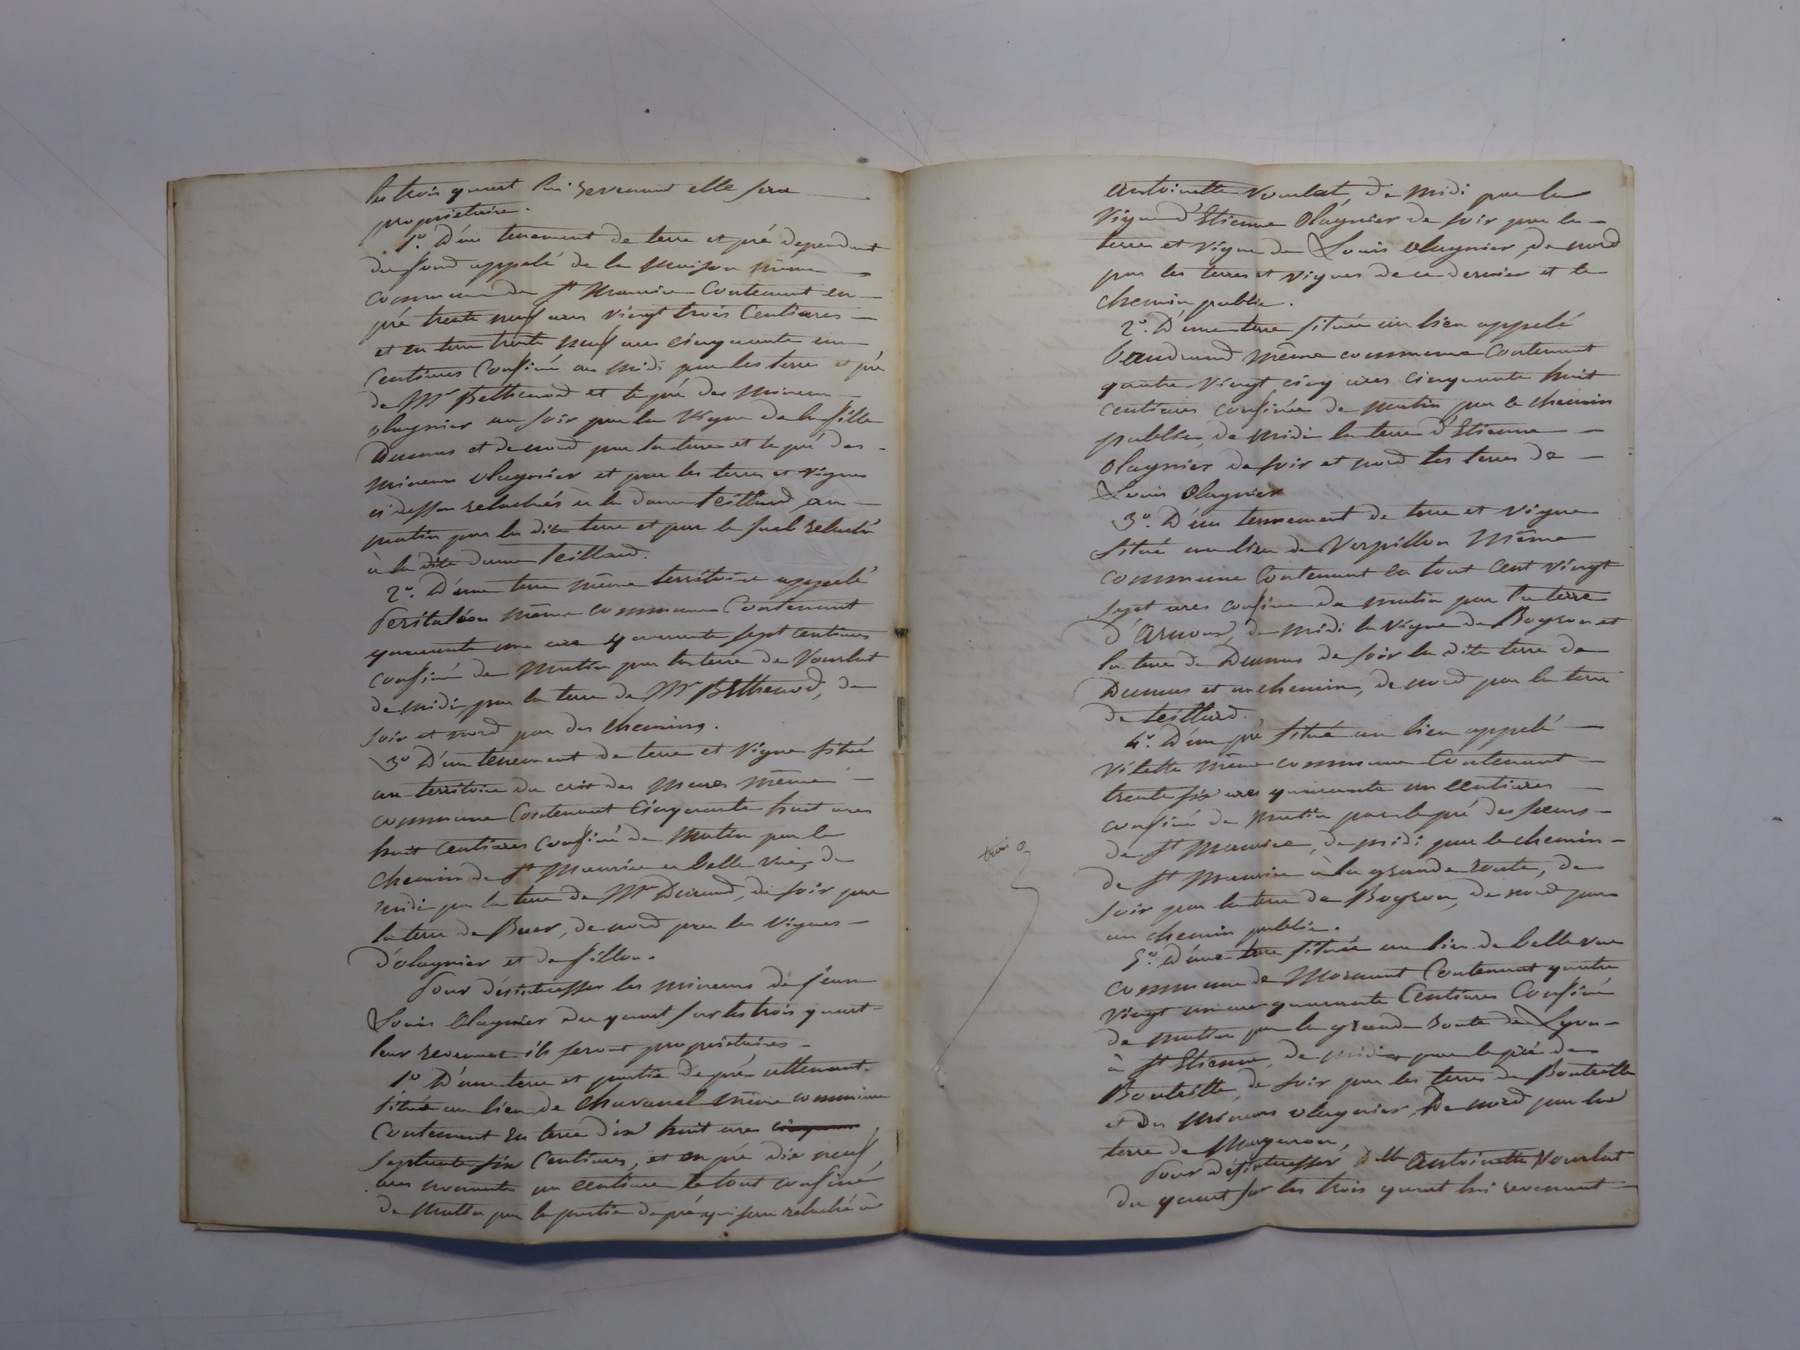 les trois quart lui revenant elle sera
propriétaire.
1º. D'un tenement de terre et pré dependant
du fond appelé de la maison même
commune de St Maurice Contenant en
pré trente neuf ares vingt trois Centiares
et en terre trente neuf ares cinquante un
Centiares Confiné au midi par les terre et pré
de Mr Bethenod et le pré des mineurs
olagnier au soir par la Vigne de la fille
Dumas et de nord par la terre et le pré des
mineurs olagnier et par les terres et vignes
ci dessus relachés a la dame teillard, au
matin par la dite terre et par le sual relaché
à la dite dame teillard.
2º. D'une terre même territoire appelé
même commune Contenant
quarante un are quarante sept centiares
confiné de matin par la terre de Vourlat
de midi par la terre de Mr Bethenod, de
soir et nord par des chemins.
3º D'un tenement de terre et vigne situé
au territoire du crêt des Mures même
commune Contenant Cinquante huit ares
huit centiares confiné de Matin par le
chemin de St Maurice a belle vue, de
midi par la terre de Mr Durand, de soir par
la terre de Buer, de nord par les Vignes
d'olagnier et de fillon.
Pour désintéresser les mineurs de feu
Louis Olagnier du quart sur les trois quart
leur revenant ils seront propriétaires
1º D'une terre et partie de pré attenant
située au lieu de Chavanel même commune
Contenant en terre dix huit ares
Septante six Centiares, et en pré dix neuf
ares nonante un centiare le tout confiné
de Matin par la partie de pré qui sera relaché à
trois
antoinette Vourlat, de Midi par la
Vigne d'Etienne Olagnier de soir par la
terre et vigne de Louis olagnier, de nord
par les terres et vignes de ce dernier et le
chemin public.
2º. D'une terre située au lieu appelé
baudrand même commune Contenant
quatre Vingt cinq ares cinquante huit
centiares confinée de matin par le chemin
public, de midi la terre d'Etienne
Olagnier de soir et nord les terres de
Louis Olagnier
3º. D'un tenement de terre et vigne
situé au lieu de Verpillon même
commune Contenant en tout Cent vingt
sept ares confiné de matin par la terre
d'Arnoud, de midi la Vigne de Boyron et
la terre de Dumas de soir la dite terre de
Dumas et un chemin, de nord par la terre
de teillard.
4º. D'un pré situé au lieu appelé
Vilette même commune Contenant
trente six ares quarante un centiares
confiné de matin par le pré des soeurs
de St Maurice, de midi par le chemin
de St Maurice à la grande route, de
soir par la terre de Boyron, de nord par
un chemin public.
5º. D'une terre située au lieu de belle vue
commune de Mornant Contenant quatre
Vingt un ares quarante Centiares Confinée
de matin par la grande route de Lyon
à St Etienne, de midi par le pré de
Bouteille, de soir par les terres de Bouteille
et des Mineurs olagnier, De nord par la
terre de Margaron,
Pour désintéresser Dlle Antoinette Vourlat
du quart sur les trois quart lui revenant